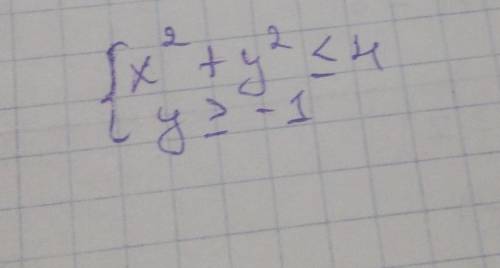 { x² + y² ≤ 4
y ≥ -1